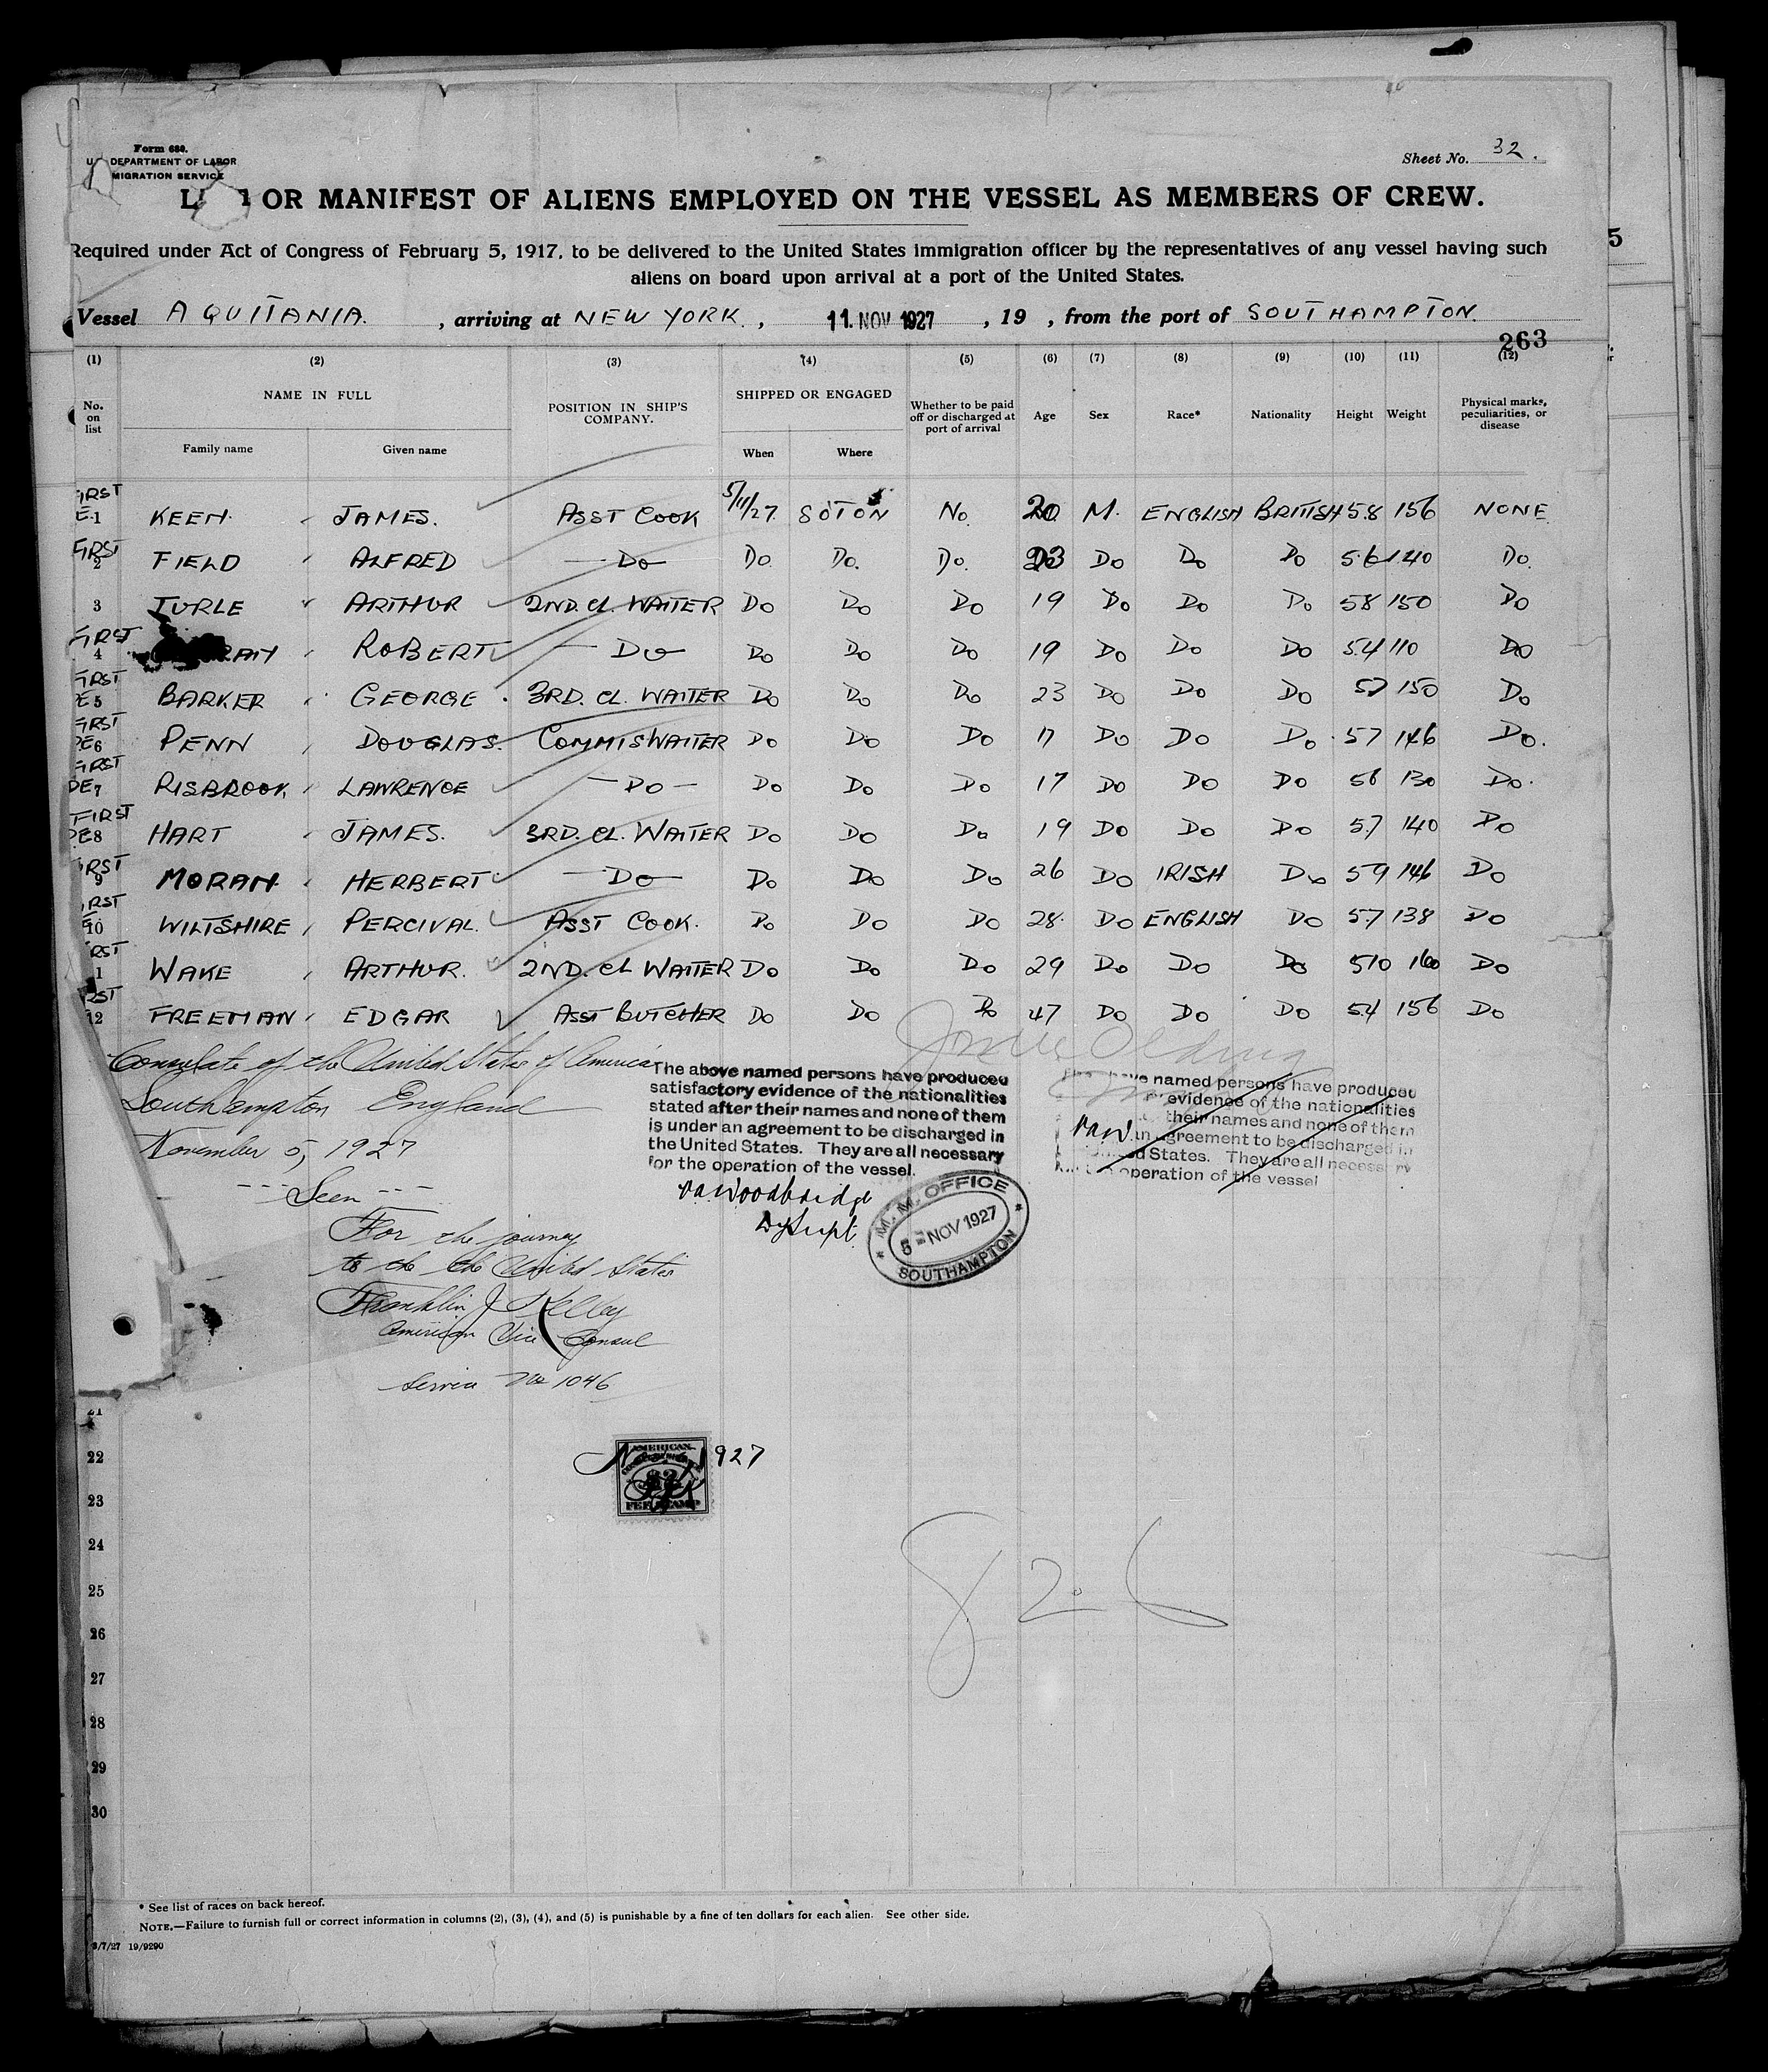 Form 680.
U. DEPARTMENT OF LABOR
MIGRATION SERVICE
Sheet No. 32.
L OR MANIFEST OF ALIENS EMPLOYED ON THE VESSEL AS MEMBERS OF CREW.
Required under Act of Congress of February 5, 1917, to be delivered to the United States immigration officer by the representatives of any vessel having such
aliens on board upon arrival at a port of the United States.
5
Vessel AQUITANIA. , arriving at NEW YORK. , 11. NOV 1927 , 19 , from the port of SOUTHAMPTON.
263
(1) (2) (3) (4) (5) (6) (7) (8) (9) (10) (11) (12)
No. on list NAME IN FULL Family name Given name POSITION IN SHIP'S COMPANY. SHIPPED OR ENGAGED When Where Whether to be paid off or discharged at port of arrival Age Sex Race* Nationality Height Weight Physical marks, peculiarities, or disease
1 KEEN. JAMES. ASST COOK 5/11/27 SOTON No. 20 M. ENGLISH BRITISH 5.8 156 NONE
FIRST 2 FIELD ALFRED — Do Do. Do. Do. 23 Do Do Do 5.6 140 Do.
3 TURLE ARTHUR 2ND. CL. WAITER Do Do Do 19 Do Do Do 58 150 Do
4 ROBERT — Do Do Do Do 19 Do Do Do 5.4 110 Do
5 BARKER GEORGE. 3RD. CL. WAITER Do Do Do 23 Do Do Do 57 150 Do
6 PENN DOUGLAS. COMMIS WAITER Do Do Do 17 Do Do Do. 57 146 Do.
7 RISBROOK, LAWRENCE — Do — Do Do Do 17 Do Do Do 56 130 Do.
FIRST 8 HART JAMES. 3RD. CL. WAITER Do Do Do 19 Do Do Do 5.7 140 Do
9 MORAN. HERBERT — Do Do Do Do 26 Do IRISH Do 59 146 Do
10 WILTSHIRE PERCIVAL. ASST COOK. Do Do Do 28. Do ENGLISH Do 5.7 138 Do
1 WAKE ARTHUR. 2ND. CL WAITER Do Do Do 29 Do Do Do 510 160 Do
12 FREEMAN EDGAR ASST BUTCHER Do Do Do 47 Do Do Do 5.4 156 Do
Consulate of the United States of America
Southampton England
November 5, 1927
--- Seen ---
For the journey
to the the United States
Franklin J Kelley
American Vice Consul
Service No 1046
The above named persons have produced
satisfactory evidence of the nationalities
stated after their names and none of them
is under an agreement to be discharged in
the United States. They are all necessary
for the operation of the vessel.
Woodbridge
Dy Supt
M. M. OFFICE
5 - NOV 1927
SOUTHAMPTON
named persons have produced
evidence of the nationalities
their names and none of them
an agreement to be discharged in
States. They are all necessary
operation of the vessel
21
22
AMERICAN
FEE STAMP
1927
23
24
25
826
26
27
28
29
30
* See list of races on back hereof.
NOTE.—Failure to furnish full or correct information in columns (2), (3), (4), and (5) is punishable by a fine of ten dollars for each alien. See other side.
8/7/27 19/9290